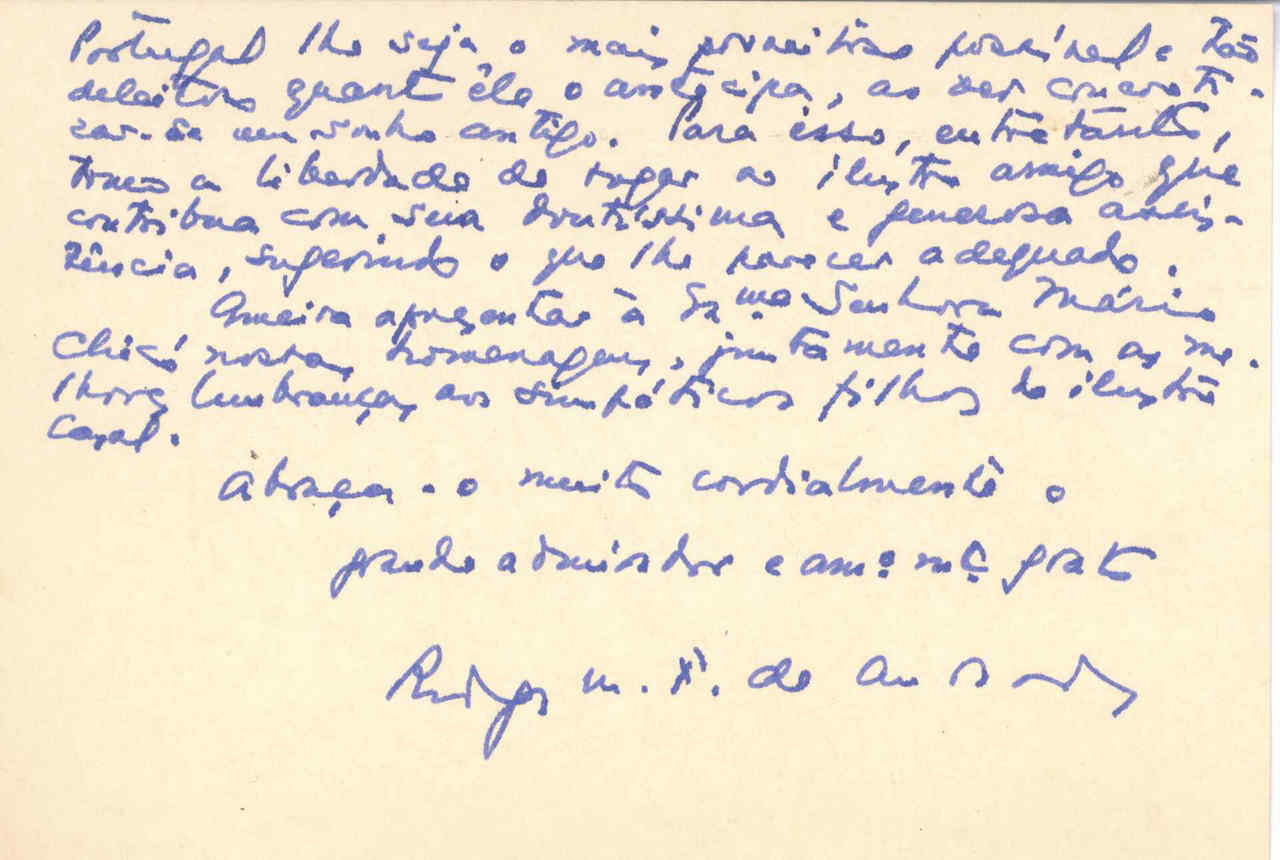 Portugal lhe seja o mais proveitoso possível e tão
deleitoso quanto êle o antecipa, ao ver concreti-
zar-se um sonho antigo. Para isso, entretanto,
tomo a liberdade de rogar ao ilustre amigo que
contribua com sua doutíssima e generosa assis-
tência, sugerindo o que lhe parecer adequado.
Queira apresentar à Exma. Senhora Mário
Chicó nossas homenagens, juntamente com as me-
lhores lembranças aos simpáticos filhos do ilustre
casal.
Abraça-o muito cordialmente o
grande admirador e amo. mto. grato
Rodrigo M. F. de Andrade